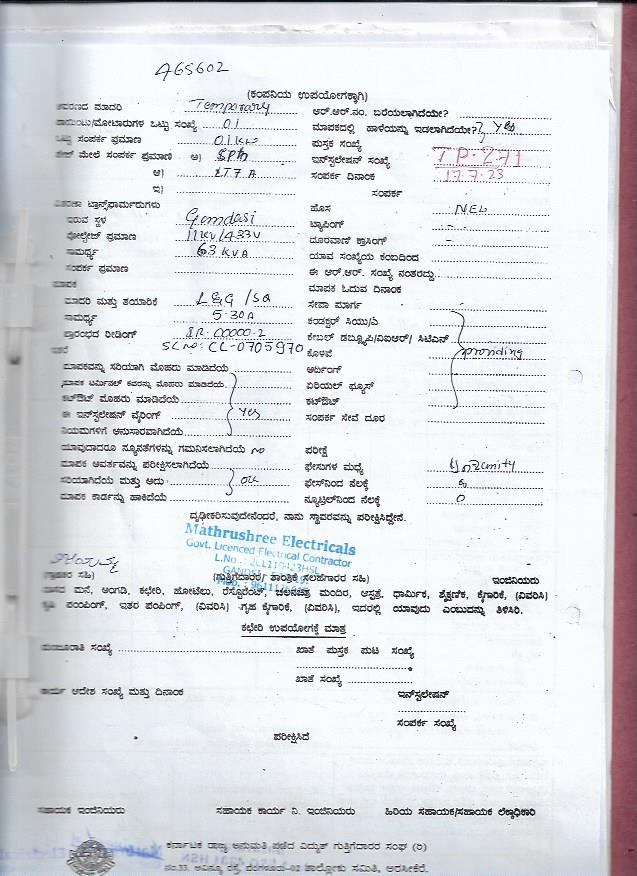 AGS602
(ಕಂಪನಿಯ ಉಪಯೋಗಕ್ಕಾಗಿ)
ಮಾದರಿ Temporary ಆರ್.ಆರ್.ನಂ. ಬರೆಯಲಾಗಿದೆಯೇ?
ಒಟ್ಟು ಸಂಖ್ಯೆ 01 ಮಾಪಕದಲ್ಲಿ ಹಾಳೆಯನ್ನು ಇಡಲಾಗಿದೆಯೇ? Yes
ಒಟ್ಟು ಸಂಪರ್ಕ ಪ್ರಮಾಣ ಪುಸ್ತಕ ಸಂಖ್ಯೆ
ಮೇಲೆ ಸಂಪರ್ಕ ಪ್ರಮಾಣ ಇನ್ಸ್ಟಲೇಷನ್ ಸಂಖ್ಯೆ TP-271
LT7A ಸಂಪರ್ಕ ದಿನಾಂಕ 17.7.23
ಇ) ಸಂಪರ್ಕ
ಟ್ರಾನ್ಸ್‌ಫಾರ್ಮರುಗಳು ಹೊಸ
ಇರುವ ಸ್ಥಳ Gamdasi ಟ್ಯಾಪಿಂಗ್
ವೋಲ್ಟೇಜ್ ಪ್ರಮಾಣ 11KV/433V ದೂರವಾಣಿ ಕ್ರಾಸಿಂಗ್ -
63 KVA ಯಾವ ಸಂಖ್ಯೆಯ ಕಂಬದಿಂದ
ಸಂಪರ್ಕ ಪ್ರಮಾಣ ಈ ಆರ್.ಆರ್. ಸಂಖ್ಯೆ ನಂತರದ್ದು
ಮಾಪಕ ಓದುವ ದಿನಾಂಕ
ಮಾದರಿ ಮತ್ತು ತಯಾರಿಕೆ L&G ಸೇವಾ ಮಾರ್ಗ
5-30A ಕಂಡಕ್ಟರ್
ಪ್ರಾರಂಭದ ರೀಡಿಂಗ್ IR-00000.2 ಕೇಬಲ್
SL no: CL-0705970 ಕೊಳವೆ
ಮಾಪಕವನ್ನು ಸರಿಯಾಗಿ ಮೊಹರು ಮಾಡಿದೆಯೆ ಅರ್ಥಿಂಗ್
ಏರಿಯಲ್ ಫ್ಯೂಸ್
ಕಟೌಟ್ ಮೊಹರು ಮಾಡಿದೆಯೆ ಕಟೌಟ್
ಈ ಇನ್ಸ್ಟಲೇಷನ್ ವೈರಿಂಗ್ Yes ಸಂಪರ್ಕ ಸೇವೆ ದೂರ
ನಿಯಮಗಳಿಗೆ ಅನುಸಾರವಾಗಿದೆಯೆ
ಯಾವುದಾದರೂ ನ್ಯೂನತೆಗಳನ್ನು ಗಮನಿಸಲಾಗಿದೆಯೆ no ಪರೀಕ್ಷೆ
ಮಾಪಕ ಪರೀಕ್ಷಿಸಲಾಗಿದೆಯೆ ಫೇಸುಗಳ ಮಧ್ಯೆ
ಸರಿಯಾಗಿದೆಯೆ ಮತ್ತು ಅದು ಫೇಸ್‌ನಿಂದ ನೆಲಕ್ಕೆ
ಮಾಪಕ ಕಾರ್ಡನ್ನು ಹಾಕಿದೆಯೆ ನ್ಯೂಟ್ರಲ್‌ನಿಂದ ನೆಲಕ್ಕೆ 0
ದೃಢೀಕರಿಸುವುದೇನೆಂದರೆ, ನಾನು ಸ್ಥಾವರವನ್ನು ಪರೀಕ್ಷಿಸಿದ್ದೇನೆ.
Mathrushree Electricals
Govt. Licenced Electrical Contractor
(ಗುತ್ತಿಗೆದಾರರ/ ತಾಂತ್ರಿಕ ಸಲಹೆಗಾರರ ಸಹಿ) ಇಂಜಿನಿಯರು
ಮನೆ, ಅಂಗಡಿ, ಕಛೇರಿ, ಹೋಟೆಲು, ರೆಸ್ಟೋರೆಂಟ್, ಚಲನಚಿತ್ರ ಮಂದಿರ, ಆಸ್ಪತ್ರೆ, ಧಾರ್ಮಿಕ, ಶೈಕ್ಷಣಿಕ, ಕೈಗಾರಿಕೆ, (ವಿವರಿಸಿ)
ಕೃಷಿ ಪಂಪಿಂಗ್, ಇತರ ಪಂಪಿಂಗ್, (ವಿವರಿಸಿ) ಗೃಹ ಕೈಗಾರಿಕೆ, (ವಿವರಿಸಿ), ಇದರಲ್ಲಿ ಯಾವುದು ಎಂಬುದನ್ನು ತಿಳಿಸಿರಿ.
ಕಛೇರಿ ಉಪಯೋಗಕ್ಕೆ ಮಾತ್ರ
ಮಂಜೂರಾತಿ ಸಂಖ್ಯೆ ಖಾತೆ ಪುಸ್ತಕ ಪುಟ ಸಂಖ್ಯೆ
ಖಾತೆ ಸಂಖ್ಯೆ
ಕಾರ್ಯ ಆದೇಶ ಸಂಖ್ಯೆ ಮತ್ತು ದಿನಾಂಕ ಇನ್ಸ್ಟಲೇಷನ್
ಸಂಪರ್ಕ ಸಂಖ್ಯೆ
ಪರೀಕ್ಷಿಸಿದೆ
ಸಹಾಯಕ ಇಂಜಿನಿಯರು ಸಹಾಯಕ ಕಾರ್ಯ ನಿ. ಇಂಜಿನಿಯರು ಹಿರಿಯ ಸಹಾಯಕ/ಸಹಾಯಕ ಲೆಕ್ಕಾಧಿಕಾರಿ
ಕರ್ನಾಟಕ ರಾಜ್ಯ ಅನುಮತಿ ಪಡೆದ ವಿದ್ಯುತ್ ಗುತ್ತಿಗೆದಾರರ ಸಂಘ (ರಿ)
ತಾಲ್ಲೋಕು ಸಮಿತಿ, ಅರಸೀಕೆರೆ.